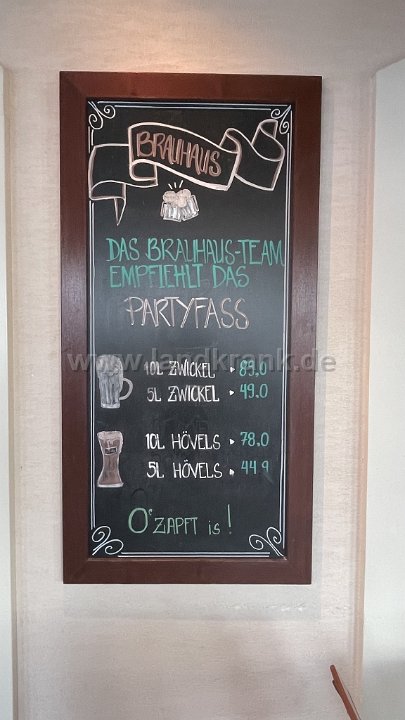 BRAUHAUS
DAS BRAUHAUS-TEAM
EMPFIEHLT DAS
PARTYFASS
www.landkrank.de
10L ZWICKEL • 89.0
5L ZWICKEL • 49.0
10L HÖVELS • 78.0
5L HÖVELS • 44.9
O'ZAPFT is!